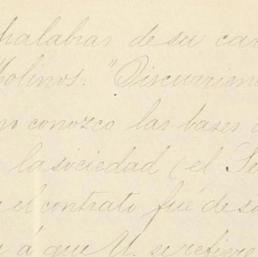 palabras de su car
Molinos: "Discurrime
no conozco las bases
la sociedad (el S
el contrato fué de s
á que V. se refiere